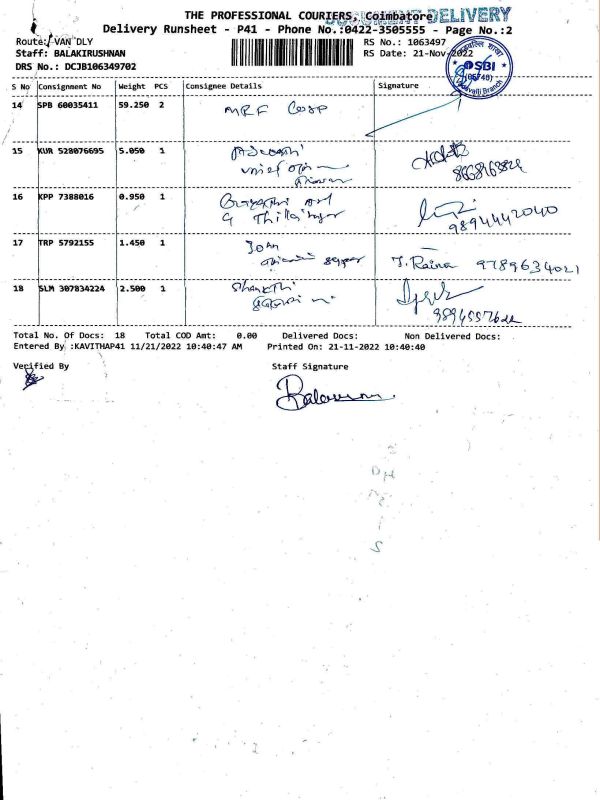 THE PROFESSIONAL COURIERS, Coimbatore
DOCUMENT DELIVERY
Delivery Runsheet - P41 - Phone No.:0422-3505555 - Page No.:2
Route: VAN DLY
RS No.: 1063497
Staff: BALAKIRUSHNAN
RS Date: 21-Nov-2022
DRS No.: DCJB106349702
SBI
Branch
S No Consignment No Weight PCS Consignee Details Signature
14 SPB 60035411 59.250 2 MRF Corp
15 KUR 528076695 5.050 1
16 KPP 7388016 0.950 1
G Thillai
9894442040
17 TRP 5792155 1.450 1 John
J. Raina 9789634021
18 SLM 307834224 2.500 1 Shakthi
Total No. Of Docs: 18 Total COD Amt: 0.00 Delivered Docs: Non Delivered Docs:
Entered By :KAVITHAP41 11/21/2022 10:40:47 AM Printed On: 21-11-2022 10:40:40
Verified By Staff Signature